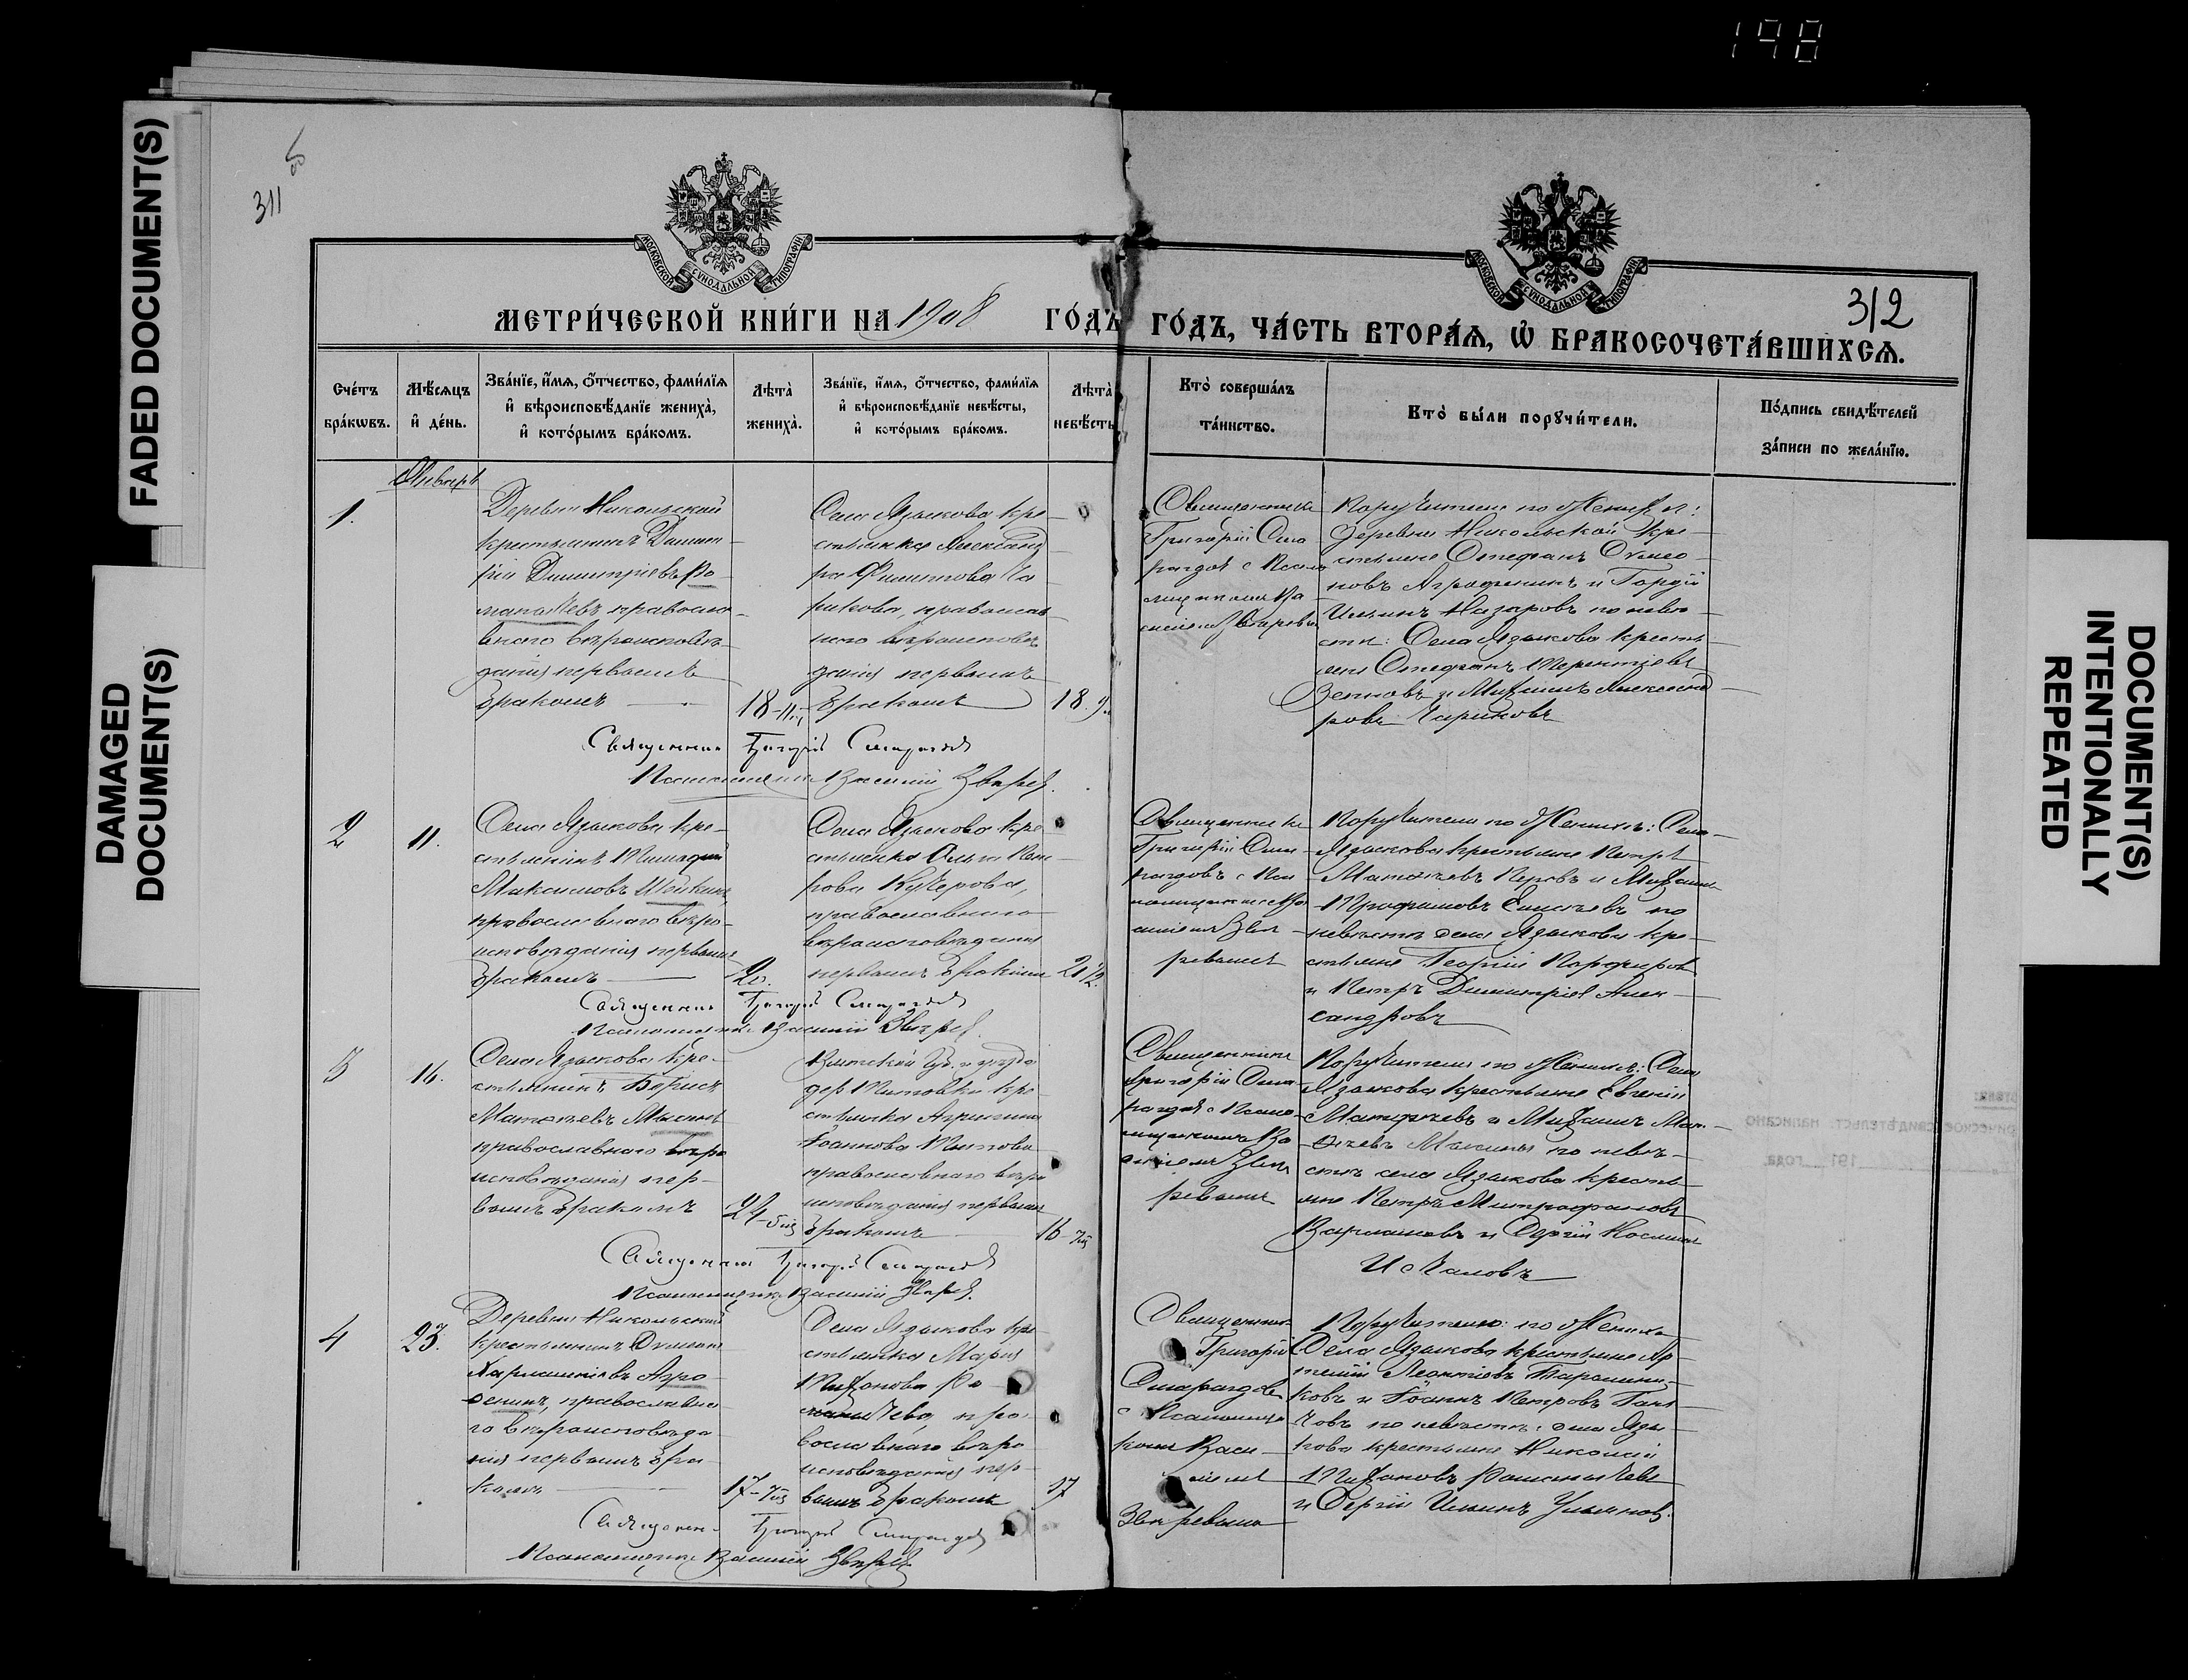 198
FADED DOCUMENT(S)
DAMAGED
DOCUMENT(S)
DOCUMENT(S)
INTENTIONALLY
REPEATED
311
312
МОСКОВСКОЙ СѴНОДАЛЬНОЙ ТИПОГРАФІИ
МОСКОВСКОЙ СѴНОДАЛЬНОЙ ТИПОГРАФІИ
МЕТРИ́ЧЕСКОЙ КНИ́ГИ НА 1908 ГО́ДЪ
ГО́ДЪ, ЧА́СТЬ ВТОРА́Ѧ, Ѽ БРАКОСОЧЕТА́ВШИХСѦ.
Сче́тъ
бра́кѡвъ.
Мѣ́сѧцъ
и҆ де́нь.
Зва́нїе, и҆́мѧ, ѻ҆́тчество, фами́лїѧ
и҆ вѣроисповѣ́данїе жениха̀,
и҆ кото́рымъ бра́комъ.
Лѣта̀
жениха̀.
Зва́нїе, и҆́мѧ, ѻ҆́тчество, фами́лїѧ
и҆ вѣроисповѣ́данїе невѣ́сты,
и҆ кото́рымъ бра́комъ.
Лѣта̀
невѣ́сты
Кто̀ соверша́лъ
та́инство.
Кто̀ бы́ли порꙋчи́тели.
По́дпись свидѣ́телей
за́писи по жела́нїю.
Январь
1.
Деревни Никольской
крестьянинъ Димит-
рій Димитріевъ Ро-
маначевъ православ-
наго вѣроисповѣ-
данія первымъ
бракомъ
18
Села Языкова кре-
стьянка Александ-
ра Филиппова Ча-
рикова, православ-
наго вѣроисповѣ-
данія первымъ
бракомъ
18
Священникъ
Григорій Сма-
рагдовъ с Псало-
мщикомъ Ва-
силіемъ Звѣревымъ
Поручители по женихѣ:
деревни Никольской кре-
стьяне Стефанъ Симео-
новъ Аграфенинъ и Гордій
Ильинъ Назаровъ по невѣ-
стѣ: Села Языкова кресть-
яне Стефанъ Терентіевъ
Зенновъ и Михаилъ Александ-
ровъ Чариковъ
Священникъ Григорій Смарагдовъ
Псаломщикъ Василій Звѣревъ.
2
11.
Села Языкова кре-
стьянинъ
Максимовъ
православнаго вѣро-
исповѣданія первымъ
бракомъ
20.
Села Языкова кре-
стьянка Ольга Пет-
рова Кучерова,
православнаго
вѣроисповѣданія
первымъ бракомъ
21 1/2.
Священникъ
Григорій Сма-
рагдовъ с Пса-
ломщикомъ Ва-
силіемъ Звѣ-
ревымъ
Поручители по женихѣ: Села
Языкова крестьяне Петръ
Матвѣевъ Перовъ и Михаилъ
Трофимовъ Елисѣевъ по
невѣстѣ села Языкова кре-
стьяне Георгій Порфировъ
и Петръ Димитріевъ Алек-
сандровъ
Священникъ Григорій Смарагдовъ
Псаломщикъ Василій Звѣревъ.
3
16.
Села Языкова кре-
стьянинъ Борисъ
Матвѣевъ Мысинъ
православнаго вѣро
исповѣданія пер-
вымъ бракомъ
24
Вятской Губ. и уѣзда
дер. Титовки кре-
стьянка Агриппина
Іоаннова Титова
православнаго вѣро
исповѣданія первымъ
бракомъ
16
Священникъ
Григорій Сма-
рагдовъ с Псало-
мщикомъ Ва-
силіемъ Звѣ-
ревымъ
Поручители по женихѣ: Села
Языкова крестьяне Евгеній
Матвѣевъ и Михаилъ Мат-
вѣевъ Мысины по невѣ-
стѣ села Языкова кресть-
яне Петръ Митрофановъ
и Сергій Косминъ
Исаковъ
Священникъ Григорій Смарагдовъ
Псаломщикъ Василій Звѣревъ.
4
23.
Деревни Никольской
крестьянинъ Симеонъ
Агра-
фенинъ, православна-
го вѣроисповѣда-
нія первымъ бра-
комъ
17
Села Языкова кре-
стьянка Марія
Тихонова Ро-
маначева, пра-
вославнаго вѣро
исповѣданія пер-
вымъ бракомъ
17
Священникъ
Григорій
Смарагдовъ
с Псаломщи-
комъ Васи-
ліемъ
Звѣревымъ
Поручители: по женихѣ
Села Языкова крестьяне Ар-
темій Леонтіевъ
ковъ и Іоаннъ Петровъ
човъ по невѣстѣ: села Язы-
кова крестьяне Николай
Тихоновъ Романачевъ
и Сергій Ильинъ Ульяновъ.
Священникъ Григорій Смарагдовъ
Псаломщикъ Василій Звѣревъ